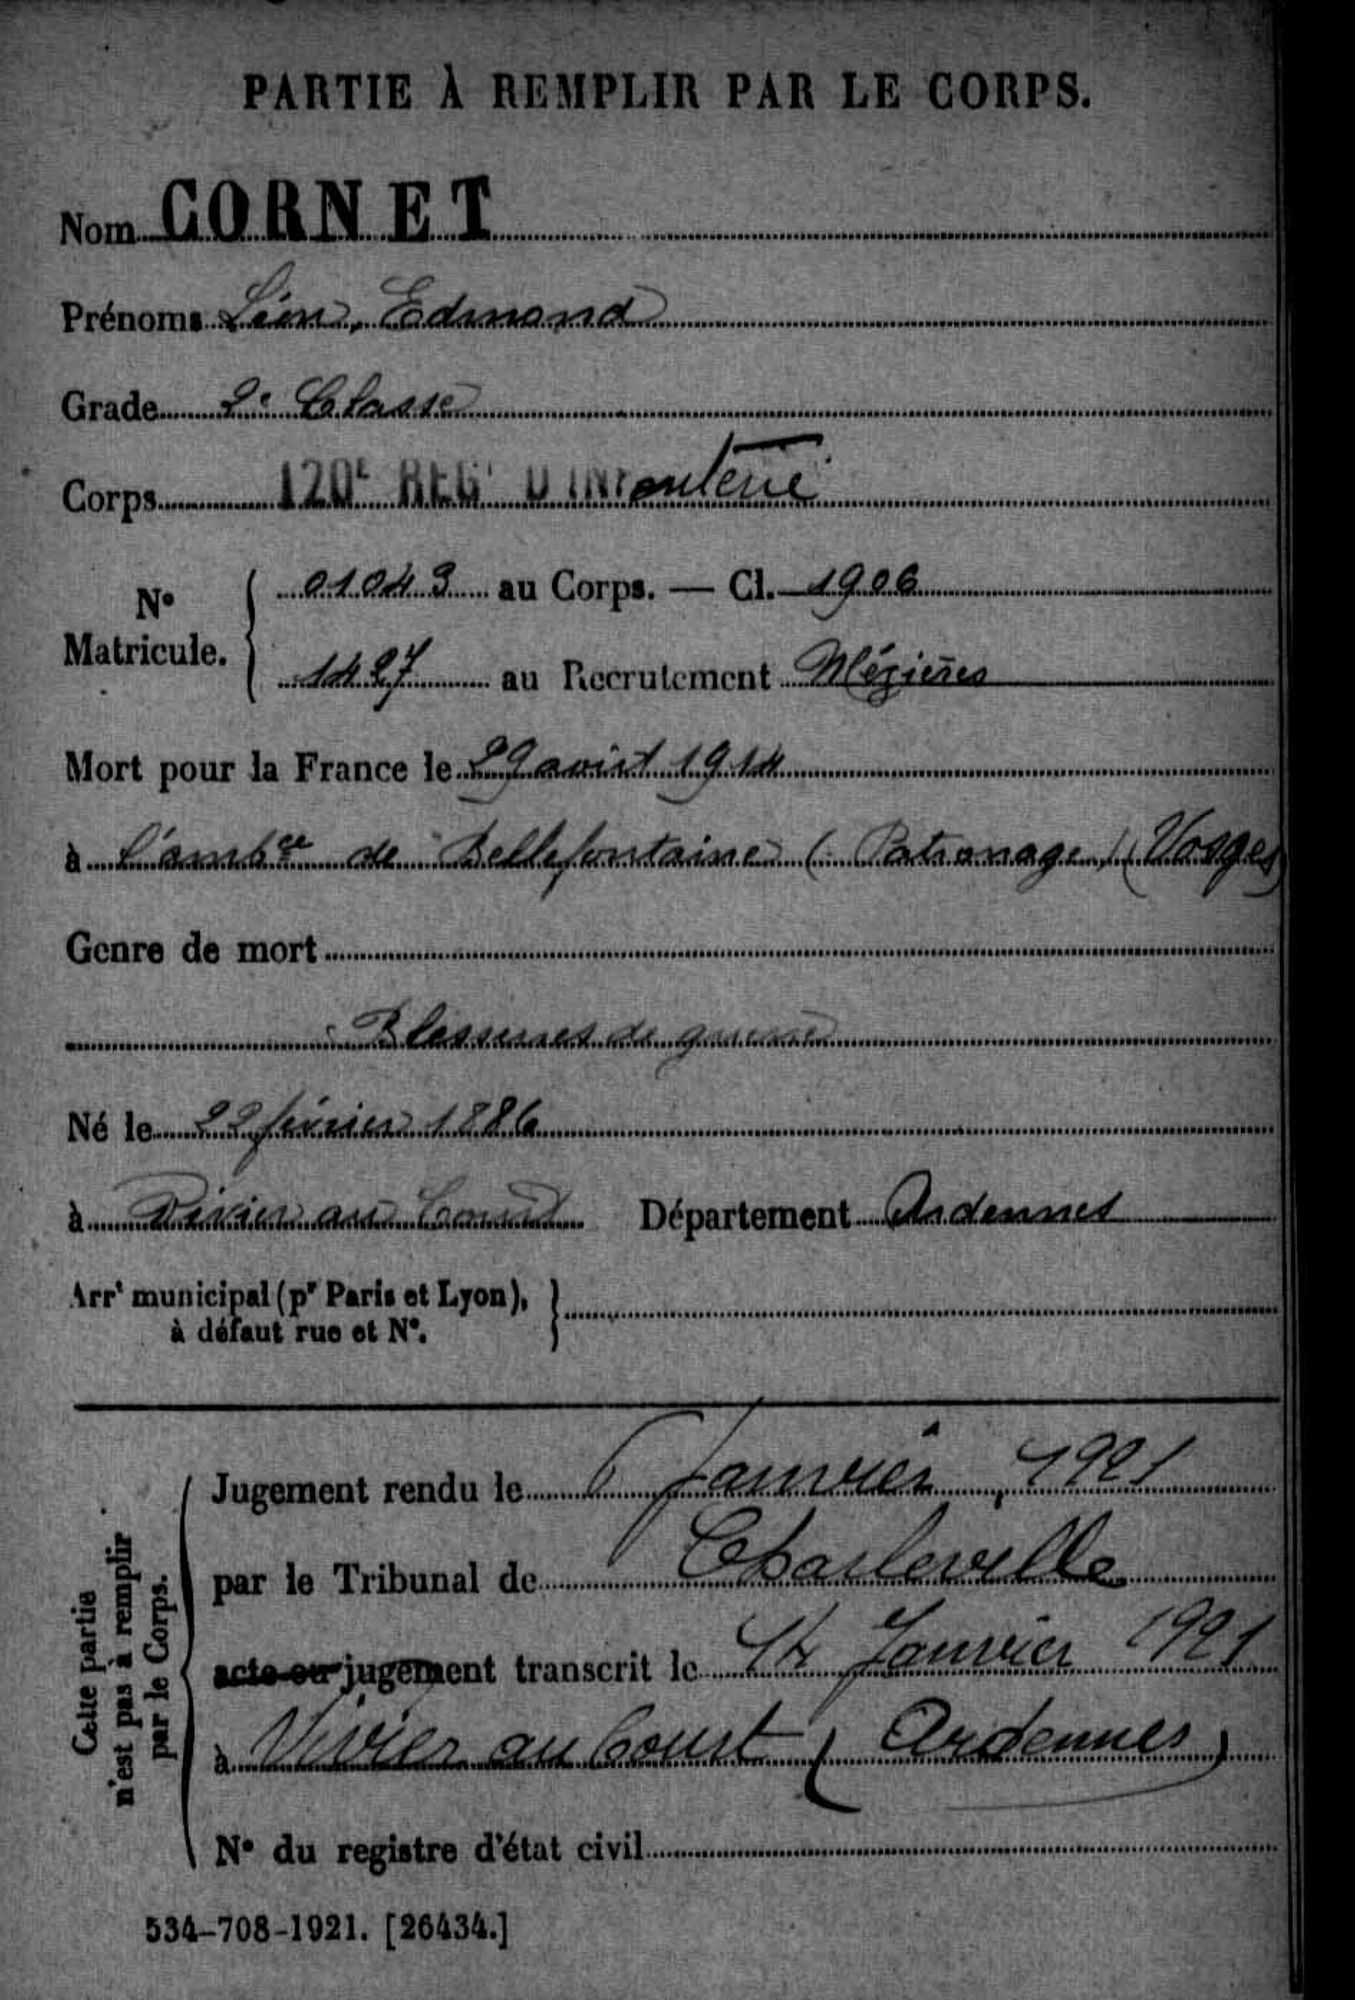 PARTIE À REMPLIR PAR LE CORPS.
Nom CORNET
Prénoms Léon, Edmond
Grade 2e Classe
Corps 120E REGt D'INFanterie
No Matricule. 01043 au Corps. — Cl. 1906
1427 au Recrutement Mézières
Mort pour la France le 29 août 1914
à l'ambce de Bellefontaine (Patronage) (Vosges)
Genre de mort
Blessures de guerre
Né le 22 février 1886
à Vivier au Court Département Ardennes
Arrt municipal (pr Paris et Lyon),
à défaut rue et No.
Cette partie
n'est pas à remplir
par le Corps.
Jugement rendu le 6 Janvier, 1921
par le Tribunal de Charleville
acte ou jugement transcrit le 14 Janvier 1921
à Vivier au Court (Ardennes)
No du registre d'état civil
534-708-1921. [26434.]